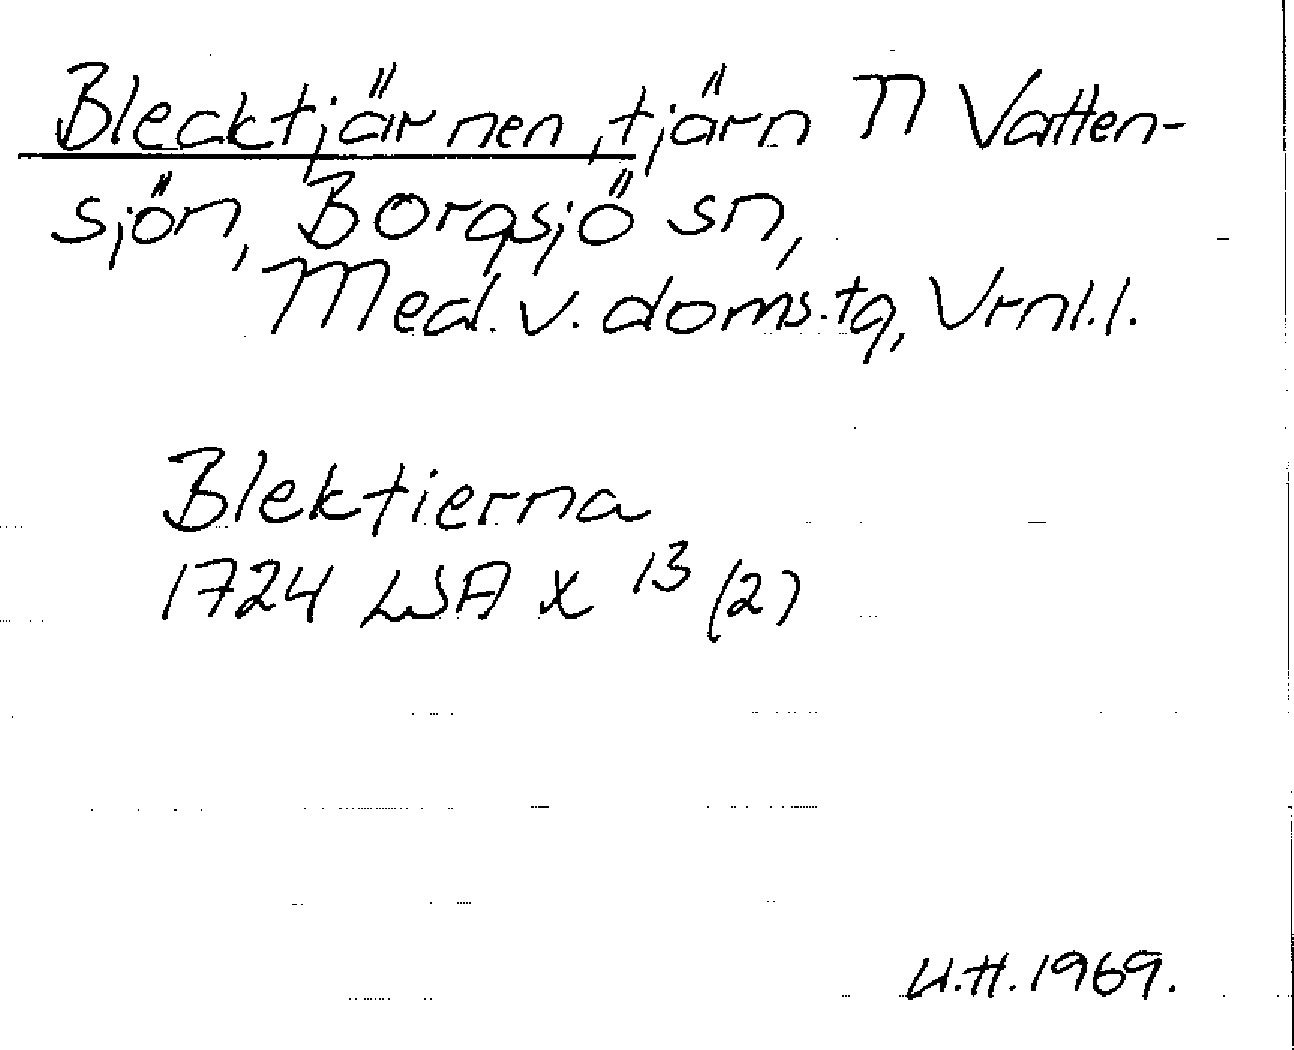 Blecktjärnen, tjärn N Vatten-
sjön, Borgsjö sn,
Med. v. doms.tg, Vrnl.l.
Blektierna
1724 LSA X 13 (2)
U.H. 1969.